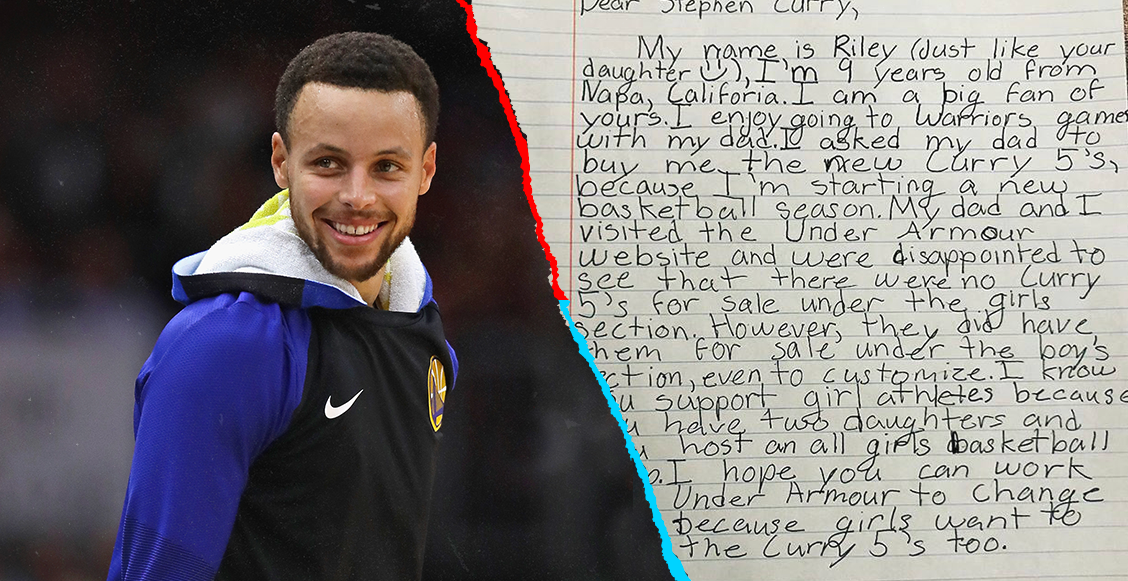 Dear Stephen Curry,
My name is Riley (Just like your
daughter), I'm 9 years old from
Napa, Califoria. I am a big fan of
yours. I enjoy going to Warriors games
with my dad. I asked my dad to
buy me the new Curry 5's,
because I'm starting a new
basketball season. My dad and I
visited the Under Armour
website and were disappointed to
see that there were no Curry
5's for sale under the girls
section. However, they did have
them for sale under the boy's
ction, even to customize. I know
u support girl athletes because
u have two daughters and
host an all girls basketball
p. I hope you can work
Under Armour to change
because girls want to
the Curry 5's too.